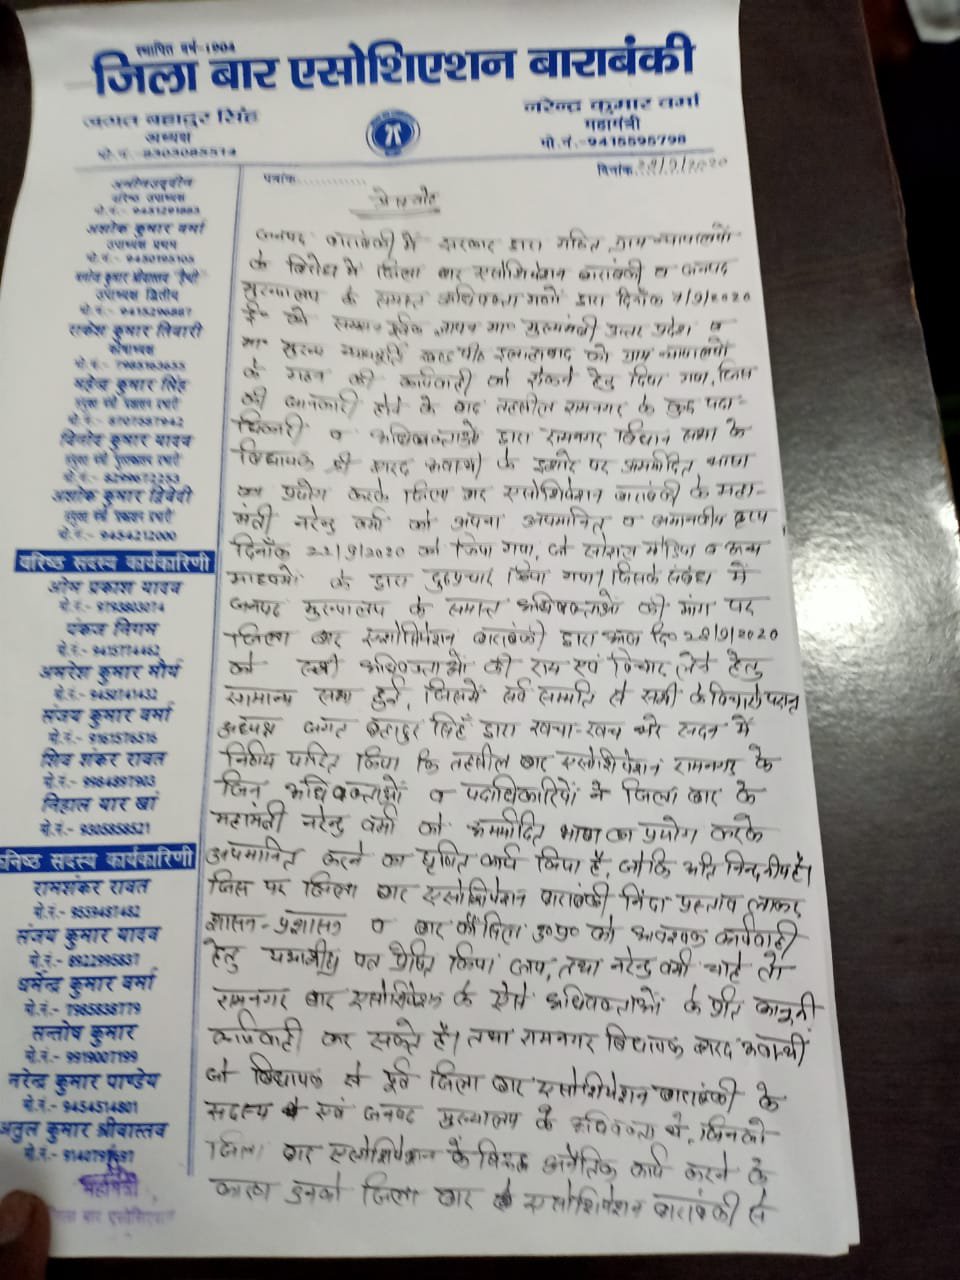 स्थापित वर्ष-1904
जिला बार एसोशिएशन बाराबंकी
जगत बहादुर सिंह
अध्यक्ष
मो.नं.-9305085514
नरेन्द्र कुमार वर्मा
महामंत्री
मो.नं.-9415595798
पत्रांक............
दिनांक 28/9/2020
प्रेस नोट
जनपद बाराबंकी में सरकार द्वारा गठित ग्राम न्यायालयों
के विरोध में जिला बार एसोशिएशन बाराबंकी व जनपद
मुख्यालय के समस्त अधिवक्ता गणों द्वारा दिनाँक 7/9/2020
ई० को ज्ञापन मा० मुख्यमंत्री उत्तर प्रदेश व
मा० मुख्य न्यायमूर्ति खण्ड पीठ इलाहाबाद को ग्राम न्यायालयों
के गठन की कार्यवाही को रोकने हेतु दिया गया, जिस
की जानकारी होने के बाद तहसील रामनगर के कुछ पदा-
धिकारी व अधिवक्ताओं द्वारा रामनगर विधान सभा के
विधायक श्री शरद अवस्थी के इशारे पर अमर्यादित भाषा
का प्रयोग करके जिला बार एसोशिएशन बाराबंकी के महा-
मंत्री नरेन्द्र वर्मा को अपमानित व अमानवीय कृत्य
दिनाँक 22/9/2020 को किया गया, जो सोशल मीडिया व अन्य
माध्यमों के द्वारा दुष्प्रचार किया गया। जिसके संबंध में
जनपद मुख्यालय के समस्त अधिवक्ताओं की मांग पर
जिला बार एसोशिएशन बाराबंकी द्वारा आज दि० 28/9/2020
को सभी अधिवक्ताओं की राय एवं विचार लेने हेतु
सामान्य सभा हुई, जिसमें सर्व सम्मति से सभी के विचारो परान्त
अध्यक्ष जगत बहादुर सिंह द्वारा खचा-खच भरे सदन में
निर्णय पारित किया कि तहसील बार एसोशिएशन रामनगर के
जिन अधिवक्ताओं व पदाधिकारियों ने जिला बार के
महामंत्री नरेन्द्र वर्मा को अमर्यादित भाषा का प्रयोग करके
अपमानित करने का घृणित कार्य किया है, जोकि अति निन्दनीय है।
जिस पर जिला बार एसोशिएशन बाराबंकी निंदा प्रस्ताव लाकर
शासन-प्रशासन व बार कौंसिल उ०प्र० को आवश्यक कार्यवाही
हेतु यथाशीघ्र पत्र प्रेषित किया जाय, तथा नरेन्द्र वर्मा चाहे तो
रामनगर बार एसोशिएशन के ऐसे अधिवक्ताओं के प्रति कानूनी
कार्यवाही कर सकते हैं। तथा रामनगर विधायक शरद अवस्थी
जो विधायक से पूर्व जिला बार एसोशिएशन बाराबंकी के
सदस्य थे एवं जनपद मुख्यालय के अधिवक्ता थे, जिनको
जिला बार एसोशिएशन के विरुद्ध अनैतिक कार्य करने के
कारण उनको जिला बार एसोशिएशन बाराबंकी से
वरिष्ठ उपाध्यक्ष
मो.नं.- 9451291883
अशोक कुमार वर्मा
उपाध्यक्ष प्रथम
मो.नं.- 9450195105
उपाध्यक्ष द्वितीय
मो.नं.- 9415296887
राकेश कुमार तिवारी
कोषाध्यक्ष
महेन्द्र कुमार सिंह
विनोद कुमार यादव
अशोक कुमार द्विवेदी
मो.नं.- 9454212000
वरिष्ठ सदस्य कार्यकारिणी
ओम प्रकाश यादव
मो.नं.- 9793803074
पंकज निगम
मो.नं.- 9415774462
अमरेश कुमार मौर्य
मो.नं.- 9450741432
संजय कुमार वर्मा
मो.नं.- 9161576516
शिव शंकर रावत
मो.नं.- 9984897903
निहाल यार खां
मो.नं.- 9305858521
कनिष्ठ सदस्य कार्यकारिणी
रामशंकर रावत
मो.नं.- 9559457482
संजय कुमार यादव
मो.नं.- 8922995831
धर्मेन्द्र कुमार वर्मा
मो.नं.- 7985835779
सन्तोष कुमार
मो.नं.- 9919007199
नरेन्द्र कुमार पाण्डेय
मो.नं.- 9454514801
अतुल कुमार श्रीवास्तव
महामंत्री
जिला बार एसोशिएशन